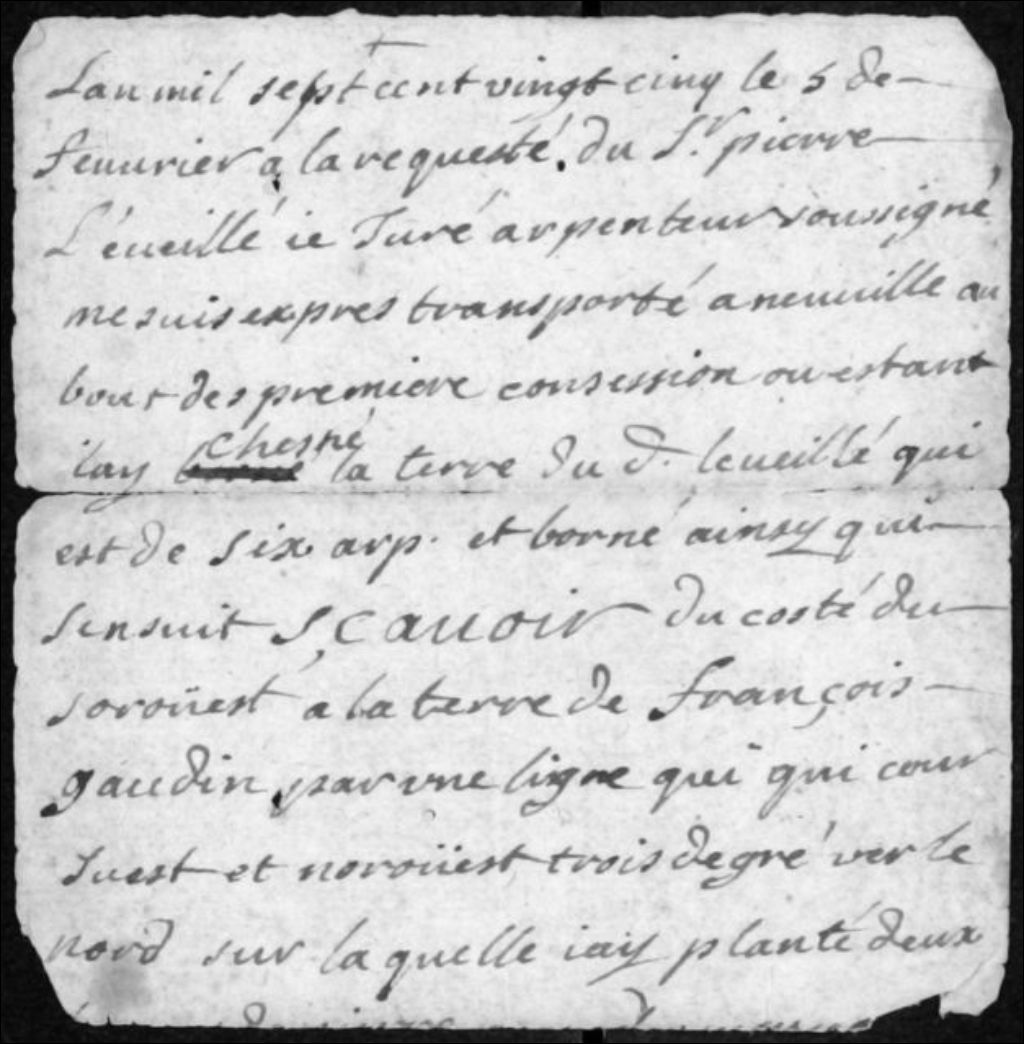 Lan mil sept cent vingt cinq le 5 de
feuurier a la requesté. du S.r pierre
L'éueillé ie Juré arpenteur soussigné
me suis expres transporté a neuuille au
bout des premiere consession ou estant
iay chesné la terre du d. leueillé qui
est de six arp. et borné ainsy qui
sensuit Sçauoir du costé du
soroüest a la terre de françois
gaudin par vne ligne qui qui cour
suest et noroüest trois degré ver le
nord sur la quelle iay planté deux